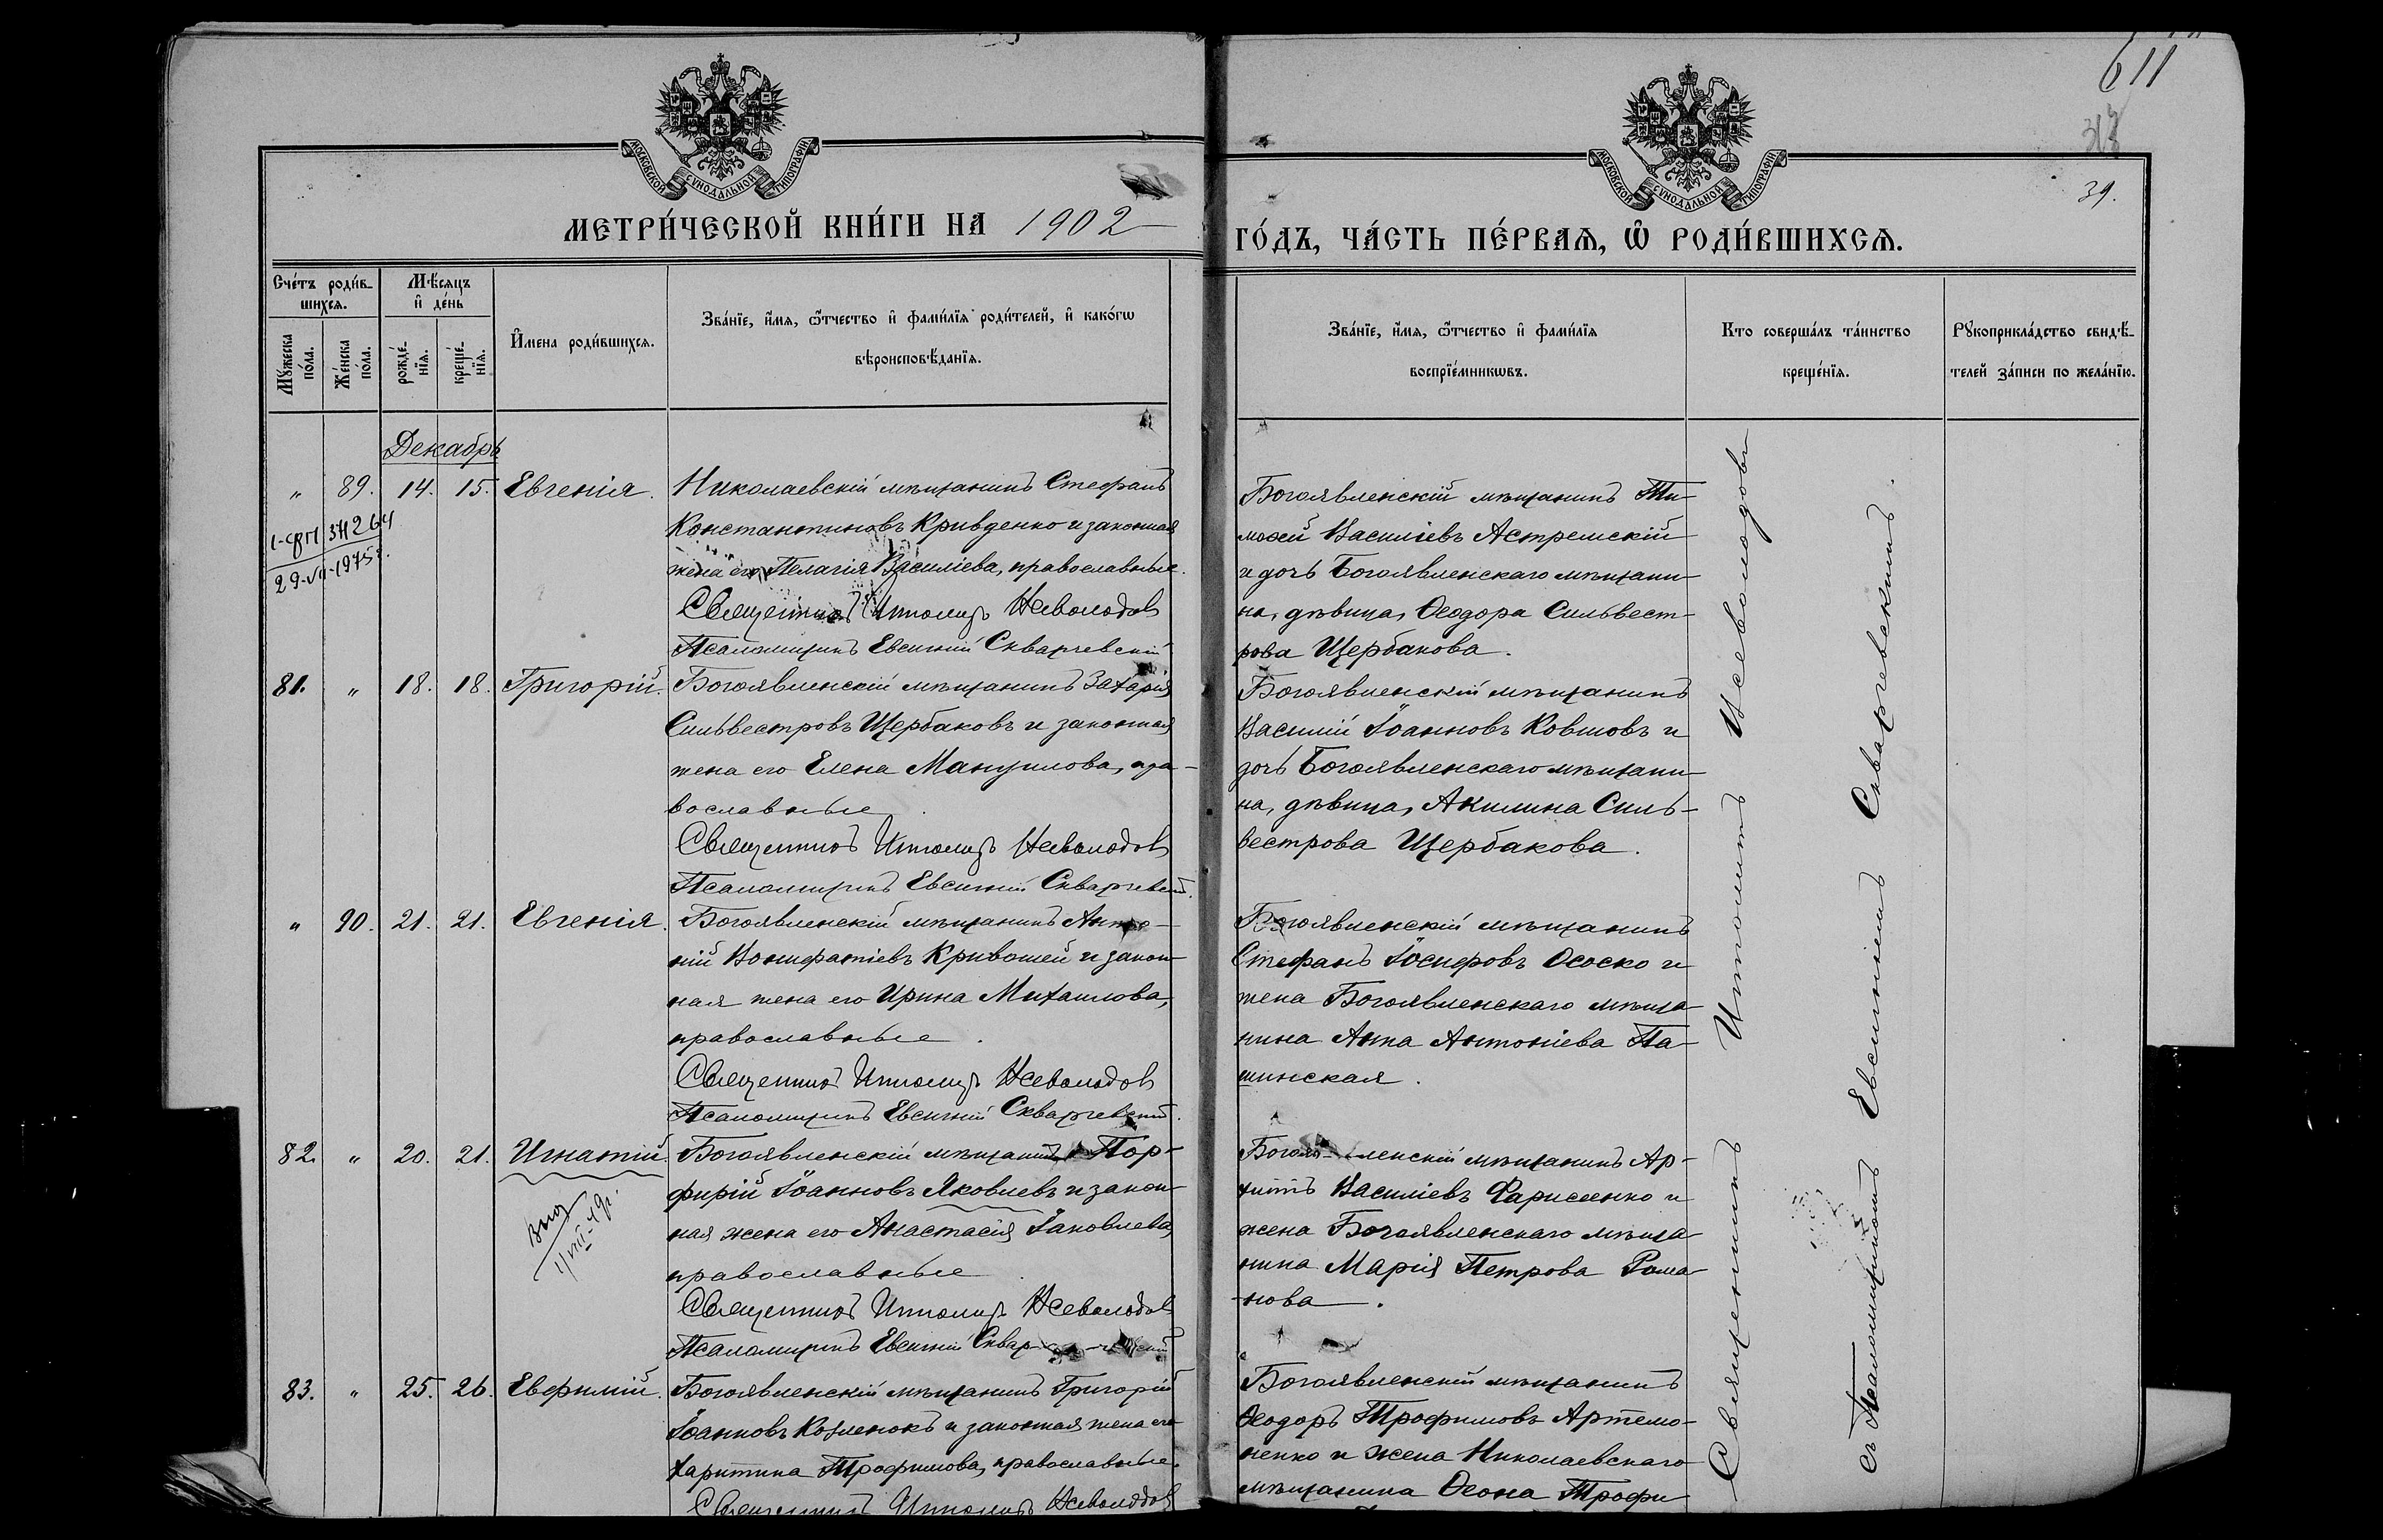 611
39.
МОСКОВСКОЙ СѴНОДАЛЬНОЙ ТИПОГРАФІИ
МОСКОВСКОЙ СѴНОДАЛЬНОЙ ТИПОГРАФІИ
МЕТРИ́ЧЕСКОЙ КНИ́ГИ НА 1902
ГО́ДЪ, ЧА́СТЬ ПЕ́РВАѦ, Ѽ РОДИ́ВШИХСѦ.
Сче́тъ роди́в-
шихсѧ.
Мꙋ́жеска по́ла.
Же́нска по́ла.
Мѣ́сѧцъ
и҆ де́нь
рожде́-нїѧ.
креще́-нїѧ.
И҆мена роди́вшихсѧ.
Зва́нїе, и҆́мѧ, ѻ҆́тчество и҆ фами́лїѧ роди́телей, и҆ како́гѡ
вѣроисповѣ́данїѧ.
Зва́нїе, и҆́мѧ, ѻ҆́тчество и҆ фами́лїѧ
воспрїе́мникѡвъ.
Кто соверша́лъ та́инство
креще́нїѧ.
Рꙋкоприкла́дство свидѣ́-
телей за́писи по жела́нїю.
Декабрь
" 89. 14. 15. Евгенія.
Николаевскій мѣщанинъ Стефанъ
Константиновъ Кривденко и законная
жена его Пелагія Василіева, православные.
Священникъ Ипполитъ Всеволодовъ
Псаломщикъ Евсигній Скварчевскій
Богоявленскій мѣщанинъ Ти-
моѳей Василіевъ Астремскій
и дочь Богоявленскаго мѣщани-
на, дѣвица, Ѳеодора Сильвест-
рова Щербакова.
81. " 18. 18. Григорій.
Богоявленскій мѣщанинъ Захарія
Сильвестровъ Щербаковъ и законная
жена его Елена Мануилова, пра-
вославные.
Священникъ Ипполитъ Всеволодовъ
Псаломщикъ Евсигній Скварчевскій.
Богоявленскій мѣщанинъ
Василій Іоанновъ Ковшовъ и
дочь Богоявленскаго мѣщани-
на, дѣвица, Акилина Силь-
вестрова Щербакова.
" 90. 21. 21. Евгенія.
Богоявленскій мѣщанинъ Анто-
ній Вонифатіевъ Кривошей и закон-
ная жена его Ирина Михаилова,
православные.
Священникъ Ипполитъ Всеволодовъ
Псаломщикъ Евсигній Скварчевскій.
Богоявленскій мѣщанинъ
Стефанъ Іосифовъ Ососко и
жена Богоявленскаго мѣща-
нина Анна Антоніева Па-
шинская.
82. " 20. 21. Игнатій.
Богоявленскій мѣщанинъ Пор-
фирій Іоанновъ Яковлевъ и закон-
ная жена его Анастасія Іаковлева,
православные.
Священникъ Ипполитъ Всеволодовъ
Псаломщикъ Евсигній Сквар-чевскій
Богоявленскій мѣщанинъ Ар-
хиппъ Василіевъ и
жена Богоявленскаго мѣща-
нина Марія Петрова Рома-
-нова.
83. " 25. 26. Евфимій.
Богоявленскій мѣщанинъ Григорій
Іоанновъ Козленокъ и законная жена его
Харитина Трофимова, православные.
Священникъ Ипполитъ Всеволодовъ
Богоявленскій мѣщанинъ
Ѳеодоръ Трофимовъ Артемо-
ненко и жена Николаевскаго
мѣщанина Ѳеона Трофи-
Священникъ Ипполитъ Всеволодовъ
съ Псаломщикомъ Евсигніемъ Скварчевскимъ.